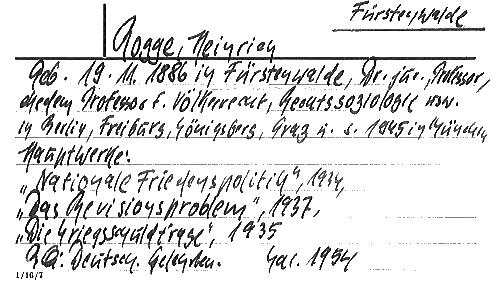 Fürstenwalde
Rogge, Heinrich
Geb. 19. 11. 1886 in Fürstenwalde, Dr. jur., Professor,
ehedem Professor f. Völkerrecht, Rechtssoziologie usw.
in Berlin, Freiburg, Königsberg, Graz u. s. 1945 in München
Hauptwerke:
„Nationale Friedenspolitik", 1934,
„Das Revisionsproblem", 1937,
„Die Kriegsschuldfrage", 1935
Deutsch. Gelehrten. 1954
1/16/7